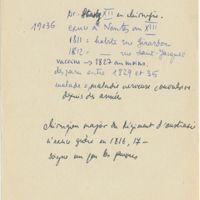 Dr. XII en chirurgie.
19036 exerce à Nantes an XIII
1811 : habite rue Girardon
1812 = rue Saint-Jacques
vaccine → 1827 au moins.
entre 1829 et 35
malade = maladie nerveuse convulsive
depuis des années
chirurgien major du Régiment d'
grade en 1816, 17 —
soigne un peu les pauvres